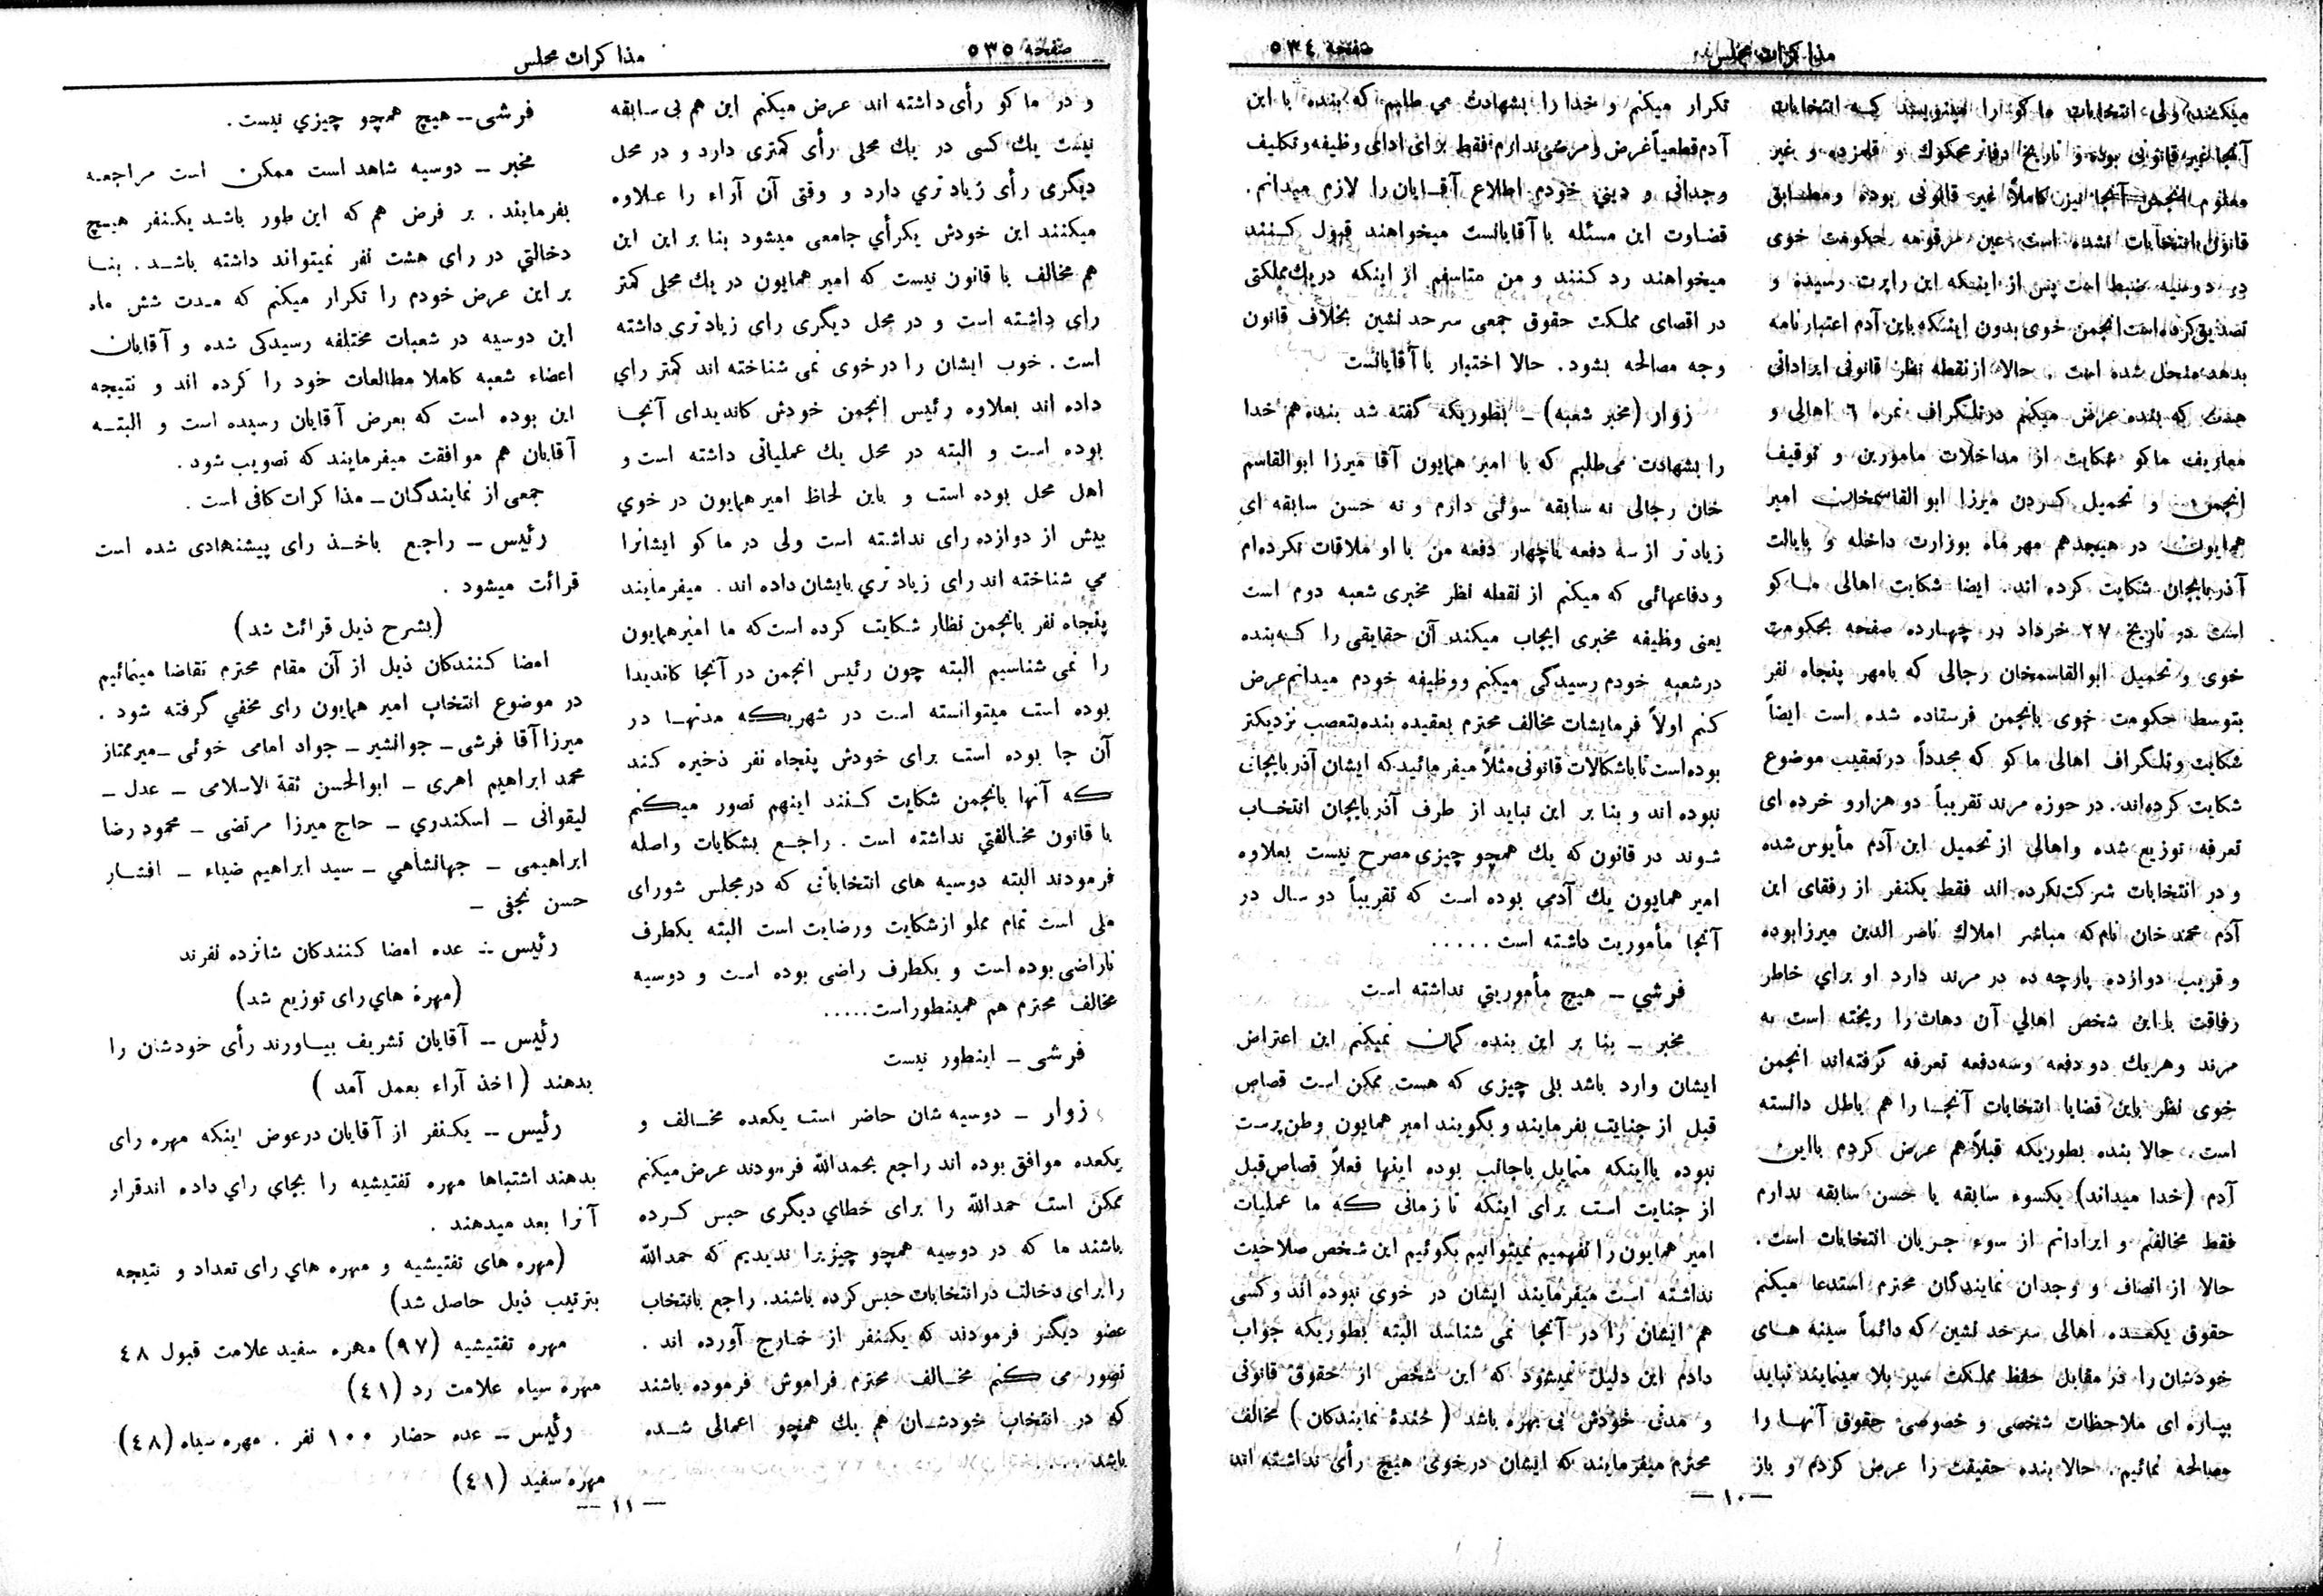 مذاکرات مجلس
صفحه ٥٣٤
میکنند ولی انتخابات ماکو را مینویسند که انتخابات
آنجا غیر قانونی بوده و تاریخ دفاتر محکوك و قلمزده و غیر
معلوم انجمن آنجا نیز کاملاً غیر قانونی بوده و مطابق
قانون انتخابات نشده است عین مرقومه حکومت خوی
در دوسیه ضبط است پس از اینکه این راپرت رسیده و
تصدیق کرده است انجمن خوی بدون اینکه باین آدم اعتبارنامه
بدهد منحل شده است . حالا از نقطه نظر قانونی ایراداتی
هست که بنده عرض میکنم در تلگراف نمره ٦ اهالی و
معاریف ماکو شکایت از مداخلات مامورین و توقیف
انجمن و تحمیل کردن میرزا ابوالقاسمخان امیر
همایون در هیجدهم مهر ماه بوزارت داخله و بایالت
آذربایجان شکایت کرده اند. ایضا شکایت اهالی ماکو
است در تاریخ ٢٧ خرداد در چهارده صفحه بحکومت
خوی و تحمیل ابوالقاسمخان رجالی که بامهر پنجاه نفر
بتوسط حکومت خوی بانجمن فرستاده شده است ایضاً
شکایت و تلگراف اهالی ماکو که مجدداً در تعقیب موضوع
شکایت کرده‌اند. در حوزه مرند تقریباً دو هزار و خرده ای
تعرفه توزیع شده و اهالی از تحمیل این آدم مأیوس شده
و در انتخابات شرکت نکرده اند فقط یکنفر از رفقای این
آدم محمد خان نام که مباشر املاك ناصر الدین میرزا بوده
و قریب دوازده پارچه ده در مرند دارد او براي خاطر
رفاقت با این شخص اهالي آن دهات را ریخته است به
مرند و هریك دو دفعه و سه دفعه تعرفه گرفته‌اند انجمن
خوی نظر باین قضایا انتخابات آنجا را هم باطل دانسته
است. حالا بنده بطوریکه قبلاً هم عرض کردم بااین
آدم (خدا میداند) یکسوء سابقه یا حسن سابقه ندارم
فقط مخالفتم و ایراداتم از سوء جریان انتخابات است.
حالا از انصاف و وجدان نمایندگان محترم استدعا میکنم
حقوق یکعده اهالی سرحد نشین که دائماً سینه های
خودشان را در مقابل حفظ مملکت سپر بلا مینمایند نباید
بپاره ای ملاحظات شخصی و خصوصی حقوق آنها را
مصالحه نمائیم. حالا بنده حقیقت را عرض کردم و باز
تکرار میکنم و خدا را بشهادت می طلبم که بنده با این
آدم قطعیاً غرض و مرضی ندارم فقط برای ادای وظیفه و تکلیف
وجدانی و دیني خودم اطلاع آقایان را لازم میدانم.
قضاوت این مسئله با آقایانست میخواهند قبول کنند
میخواهند رد کنند و من متاسفم از اینکه در یك مملکتی
در اقصای مملکت حقوق جمعی سرحد نشین بخلاف قانون
وجه مصالحه بشود. حالا اختیار با آقایانست
زوار (مخبر شعبه) ـ بطوریکه گفته شد بنده هم خدا
را بشهادت می‌طلبم که با امیر همایون آقا میرزا ابوالقاسم
خان رجالی نه سابقه سوئی دارم و نه حسن سابقه ای
زیاد تر از سه دفعه یا چهار دفعه من با او ملاقات نکرده‌ام
و دفاعهائی که میکنم از نقطه نظر مخبری شعبه دوم است
یعنی وظیفه مخبری ایجاب میکند آن حقایقی را که بنده
در شعبه خودم رسیدگی میکنم و وظیفه خودم میدانم عرض
کنم اولاً فرمایشات مخالف محترم بعقیده بنده بتعصب نزدیکتر
بوده است تا باشکالات قانونی مثلاً میفرمائید که ایشان آذربایجانی
نبوده اند و بنا بر این نباید از طرف آذربایجان انتخاب
شوند در قانون که یك همچو چیزی مصرح نیست بعلاوه
امیر همایون یك آدمی بوده است که تقریباً دو سال در
آنجا مأموریت داشته است .....
فرشي ـ هیچ مأموریتي نداشته است
مخبر ـ بنا بر این بنده گمان نمیکنم این اعتراض
ایشان وارد باشد بلی چیزی که هست ممکن است قصاص
قبل از جنایت بفرمایند و بگویند امیر همایون وطن پرست
نبوده یا اینکه متمایل باجانب بوده اینها فعلاً قصاص قبل
از جنایت است برای اینکه تا زمانی که ما عملیات
امیر همایون را نفهمیم نمیتوانیم بگوئیم این شخص صلاحیت
نداشته است میفرمایند ایشان در خوی نبوده اند و کسی
هم ایشان را در آنجا نمی شناسد البته بطوریکه جواب
دادم این دلیل نمیشود که این شخص از حقوق قانونی
و مدنی خودش بی بهره باشد (خندهٔ نمایندکان) مخالف
محترم میفرمایند که ایشان در خوی هیچ رأی نداشته اند
— ١٠ —
صفحه ٥٣٥
مذاکرات مجلس
و در ماکو رأی داشته اند عرض میکنم این هم بی سابقه
نیست یك کسی در یك محلی رأی کمتری دارد و در محل
دیگری رأی زیاد تري دارد و وقتی آن آراء را علاوه
میکنند این خودش یکرأي جامعی میشود بنا بر این این
هم مخالف با قانون نیست که امیر همایون در یك محلی کمتر
رای داشته است و در محل دیگری رای زیاد تری داشته
است . خوب ایشان را در خوی نمی شناخته اند کمتر راي
داده اند بعلاوه رئیس انجمن خودش کاندیدای آنجا
بوده است و البته در محل یك عملیاتی داشته است و
اهل محل بوده است و باین لحاظ امیر همایون در خوي
بیش از دوازده رای نداشته است ولی در ماکو ایشانرا
مي شناخته اند رای زیاد تري بایشان داده اند. میفرمایند
پنجاه نفر بانجمن نظار شکایت کرده است که ما امیر همایون
را نمی شناسیم البته چون رئیس انجمن در آنجا کاندیدا
بوده است میتوانسته است در شهریکه مدتها در
آن جا بوده است برای خودش پنجاه نفر ذخیره کند
که آنها بانجمن شکایت کنند اینهم تصور میکنم
با قانون مخالفتي نداشته است . راجع بشکایات واصله
فرمودند البته دوسیه های انتخاباتی که در مجلس شورای
ملی است تمام مملو از شکایت و رضایت است البته یکطرف
ناراضی بوده است و یکطرف راضی بوده است و دوسیه
مخالف محترم هم همینطور است.....
فرشی ـ اینطور نیست
زوار ـ دوسیه شان حاضر است یکعده مخالف و
یکعده موافق بوده اند راجع بحمدالله فرمودند عرض میکنم
ممکن است حمدالله را برای خطاي دیگری حبس کرده
باشند ما که در دوسیه همچو چیزیرا ندیدیم که حمدالله
را برای دخالت در انتخابات حبس کرده باشند. راجع بانتخاب
عضو دیگر فرمودند که یکنفر از خارج آورده اند .
تصور می کنم مخالف محترم فراموش فرموده باشند
که در انتخاب خودشان هم یك همچو اعمالی شده
باشد ....
فرشی ـ هیچ همچو چیزي نیست.
مخبر ـ دوسیه شاهد است ممکن است مراجعه
بفرمایند . بر فرض هم که این طور باشد یکنفر هیچ
دخالتي در رای هشت نفر نمیتواند داشته باشد . بنا
بر این عرض خودم را تکرار میکنم که مدت شش ماه
این دوسیه در شعبات مختلفه رسیدگی شده و آقایان
اعضاء شعبه کاملا مطالعات خود را کرده اند و نتیجه
این بوده است که بعرض آقایان رسیده است و البته
آقایان هم موافقت میفرمایند که تصویب شود.
جمعی از نمایندگان ـ مذاکرات کافی است.
رئیس ـ راجع باخذ رای پیشنهادی شده است
قرائت میشود .
(بشرح ذیل قرائت شد)
امضا کنندکان ذیل از آن مقام محترم تقاضا مینمائیم
در موضوع انتخاب امیر همایون رای مخفي گرفته شود .
میرزا آقا فرشی ـ جوانشیر ـ جواد امامی خوئی ـ میرممتاز
محمد ابراهیم اهری ـ ابوالحسن ثقة الاسلامی ـ عدل ـ
لیقوانی ـ اسکندري ـ حاج میرزا مرتضی ـ محمود رضا
ابراهیمی ـ جهانشاهي ـ سید ابراهیم ضیاء ـ افشار
حسن نجفی ـ
رئیس ـ عده امضا کنندکان شانزده نفرند
(مهره هاي رای توزیع شد)
رئیس ـ آقایان تشریف بیاورند رأی خودشان را
بدهند (اخذ آراء بعمل آمد)
رئیس ـ یکنفر از آقایان در عوض اینکه مهره رای
بدهند اشتباها مهره تفتیشیه را بجاي راي داده اند قرار
آنرا بعد میدهند .
(مهره های تفتیشیه و مهره هاي رای تعداد و نتیجه
بترتیب ذیل حاصل شد)
مهره تفتیشیه (٩٧) مهره سفید علامت قبول ٤٨
مهره سیاه علامت رد (٤١)
رئیس ـ عده حضار ١٠٠ نفر . مهره سیاه (٤٨)
مهره سفید (٤١)
— ١١ —